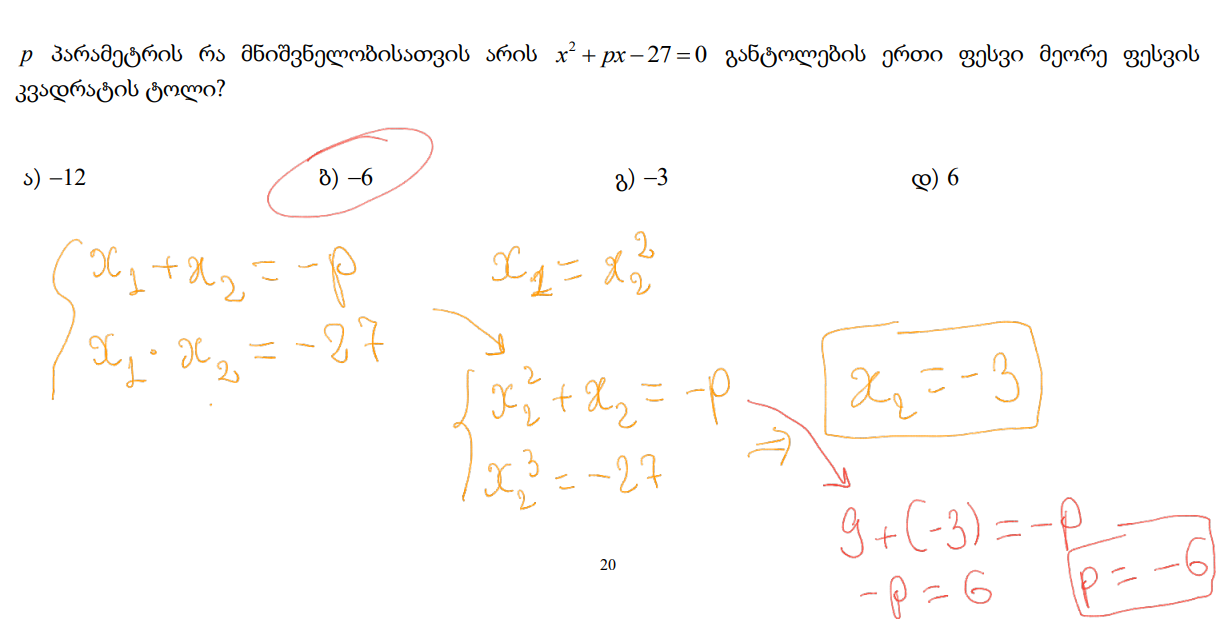 p პარამეტრის რა მნიშვნელობისათვის არის x² + px − 27 = 0 განტოლების ერთი ფესვი მეორე ფესვის
კვადრატის ტოლი?
ა) −12 ბ) −6 გ) −3 დ) 6
x₁ + x₂ = −p
x₁ · x₂ = −27
x₁ = x₂²
x₂² + x₂ = −p
x₂³ = −27
⇒
x₂ = −3
9 + (−3) = −p
−p = 6
p = −6
20